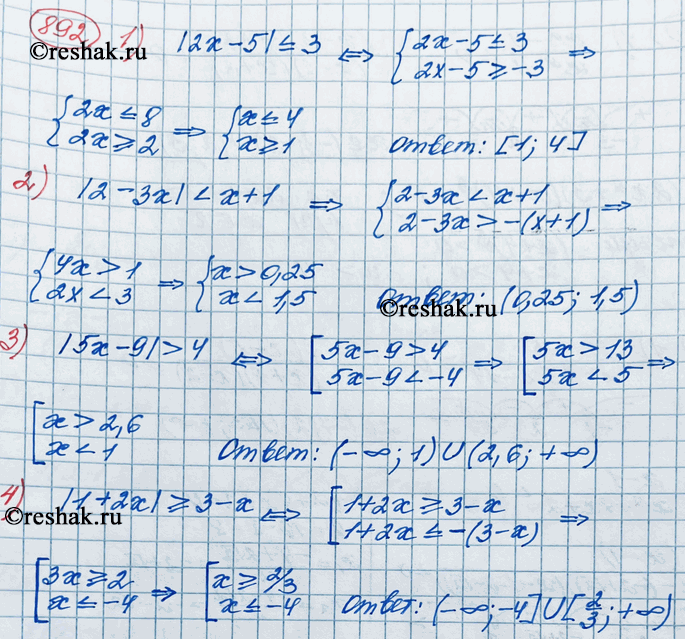 892 1) |2x-5| ≤ 3 ⇔ { 2x-5 ≤ 3 ⇒
2x-5 ≥ -3
©reshak.ru
{ 2x ≤ 8 ⇒ { x ≤ 4
2x ≥ 2 x ≥ 1 ответ: [1; 4]
2) |2-3x| < x+1 ⇒ { 2-3x < x+1
2-3x > -(x+1) ⇒
{ 4x > 1 ⇒ { x > 0,25
2x < 3 x < 1,5 ответ: (0,25; 1,5)
©reshak.ru
3) |5x-9| > 4 ⇔ [ 5x-9 > 4 ⇒ [ 5x > 13 ⇒
5x-9 < -4 5x < 5
[ x > 2,6
x < 1 ответ: (-∞; 1) ∪ (2,6; +∞)
4) |1+2x| ≥ 3-x ⇔ [ 1+2x ≥ 3-x
©reshak.ru 1+2x ≤ -(3-x) ⇒
[ 3x ≥ 2 ⇒ [ x ≥ 2/3
x ≤ -4 x ≤ -4 ответ: (-∞; -4] ∪ [2/3; +∞)